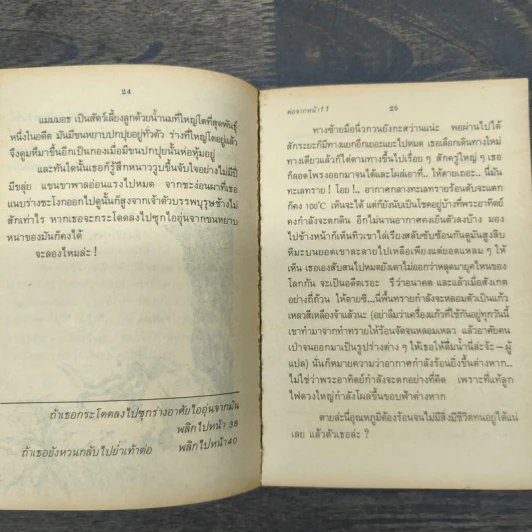 24
แมมมอธ เป็นสัตว์เลี้ยงลูกด้วยน้ำนมที่ใหญ่โตที่สุดพันธุ์
หนึ่งในอดีต มันมีขนหยาบปกปุยอยู่ทั่วตัว ร่างที่ใหญ่โตอยู่แล้ว
จึงดูมหึมาขึ้นอีกเป็นกองเมื่อมีขนปกปุยนั้นห่อหุ้มอยู่
และทันใดนั้นเธอก็รู้สึกหนาววูบขึ้นจับใจอย่างไม่มีปี่
มีขลุ่ย แขนขาพาลอ่อนแรงไปหมด จากชะง่อนผาที่เธอ
แนบร่างชะโงกออกไปดูนั้นก็สูงจากเจ้าตัวบรรพบุรุษช้างไม่
สักเท่าไร หากเธอจะกระโดดลงไปซุกไออุ่นจากขนหยาบ
หนาของมันก็คงได้
จะลองไหมล่ะ !
ถ้าเธอกระโดดลงไปซุกร่างอาศัยไออุ่นจากมัน
พลิกไปหน้า 38
ถ้าเธอยังหวนกลับไปย่ำเท้าต่อ พลิกไปหน้า 40
ต่อจากหน้า 11
25
ทางซ้ายมือนี่วกวนยังกะสว่านแน่ะ พอผ่านไปได้
สักระยะก็มีทางแยกอีกเยอะแยะไปหมด เธอเลือกเดินทางไหน
ทางเดียวแล้วก็ไต่ตามทางขึ้นไปเรื่อย ๆ สักครู่ใหญ่ ๆ เธอ
ก็ลอดโพรงออกมาจนได้และโผล่เอาที่.. ให้ตายเถอะ.. นี่มัน
ทะเลทราย ! โอย !.. อากาศกลางทะเลทรายร้อนดับจะแตก
ก็คง 100°C เห็นจะได้ แต่ก็ยังนับเป็นโชคอยู่บ้างที่พระอาทิตย์
คงกำลังจะตกดิน อีกไม่นานอากาศคงเย็นตัวลงบ้าง มอง
ไปข้างหน้าก็เห็นทิวเขาไล่เรียงสลับซับซ้อนกันดูมันสูงลิบ
หิมะบนยอดเขาละลายไปเหลือเพียงแต่ยอดแหลม ๆ ให้
เห็น เธอเองสับสนไปหมดยังเดาไม่ออกว่าหลุดมายุคไหนของ
โลกกัน จะเป็นอดีตเรอะ รึว่าอนาคต และแล้วเมื่อสังเกต
อย่างถี่ถ้วน ให้ตายซิ...นี่พื้นทรายกำลังจะหลอมตัวเป็นแก้ว
เหลวสีเหลืองจ้าแล้วนะ (อย่าลืมว่าเครื่องแก้วที่ใช้กันอยู่ทุกวันนี้
เขาทำมาจากทำทรายให้ร้อนจัดจนหลอมเหลว แล้วอาศัยคน
เป่าจนออกมาเป็นรูปร่างต่าง ๆ ให้เธอใช้ดื่มน้ำนี่ล่ะจ้ะ - ผู้
แปล) นั่นก็หมายความว่าอากาศกำลังร้อนยิ่งขึ้นต่างหาก..
ไม่ใช่ว่าพระอาทิตย์กำลังจะตกอย่างที่คิด เพราะที่แท้ลูก
ไฟดวงใหญ่กำลังโผล่ขึ้นขอบฟ้าต่างหาก
ตายล่ะนี่อุณหภูมิต้องร้อนจนไม่มีสิ่งมีชีวิตทนอยู่ได้แน่
เลย แล้วตัวเธอล่ะ ?